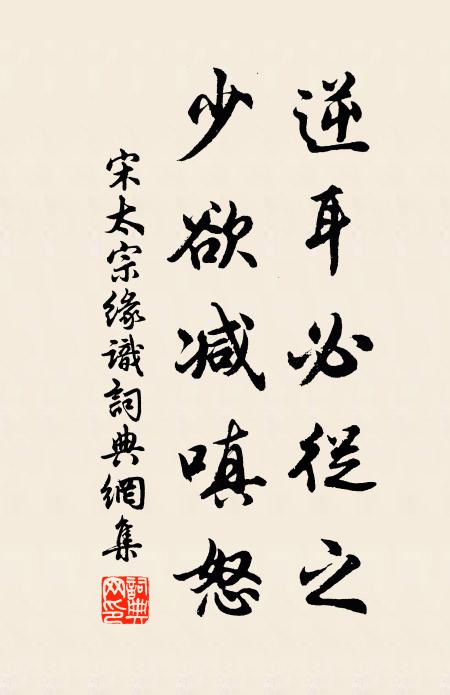 逆耳必從之
少欲減嗔怒
宋太宗緣識詞典網集
詞典網印